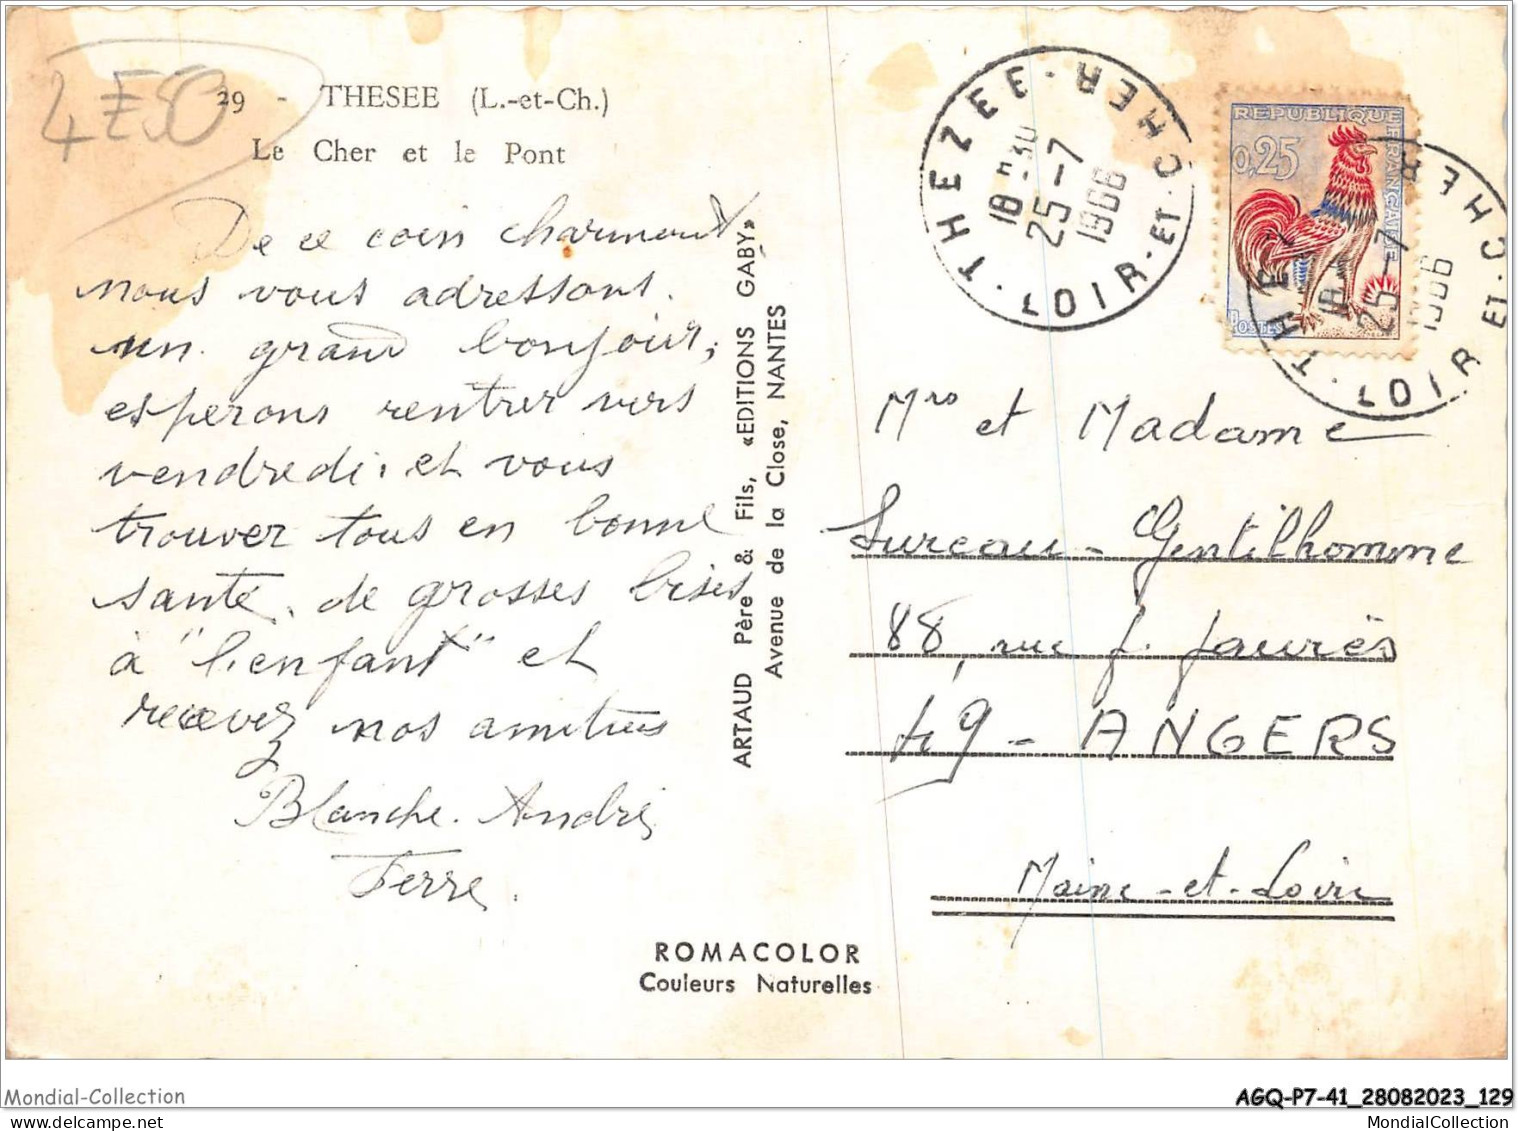 4E50
29 - THESEE (L.-et-Ch.)
Le Cher et le Pont
De ce coin charmant
nous vous adressons
un grand bonjour,
esperons rentrer vers
vendredi. et vous
trouver tous en bonne
santé. de grosses bises
à "l'enfant" et
recevez nos amitiés
Blanche. André
Ferre.
ARTAUD Père & Fils, «EDITIONS GABY»
Avenue de la Close, NANTES
ROMACOLOR
Couleurs Naturelles
THEZEE · LOIR-ET-CHER
18H30
25-7
1966
REPUBLIQUE FRANÇAISE
0,25
POSTES
THEZEE · LOIR-ET-CHER
18H30
25-7
1966
Mro et Madame
Sureau-Gentilhomme
88, rue J. Jaurès
49 - ANGERS
Maine-et-Loire
Mondial-Collection
AGQ-P7-41_28082023_129
MondialCollection